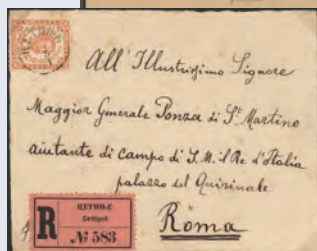 All' Illustrissimo Signore
Maggior Generale Ponza di S.t Martino
aiutante di campo di S. M. il Re d'Italia
palazzo del Quirinale
Roma
R
ЦЕТИЊЕ
Cettigné
№ 583